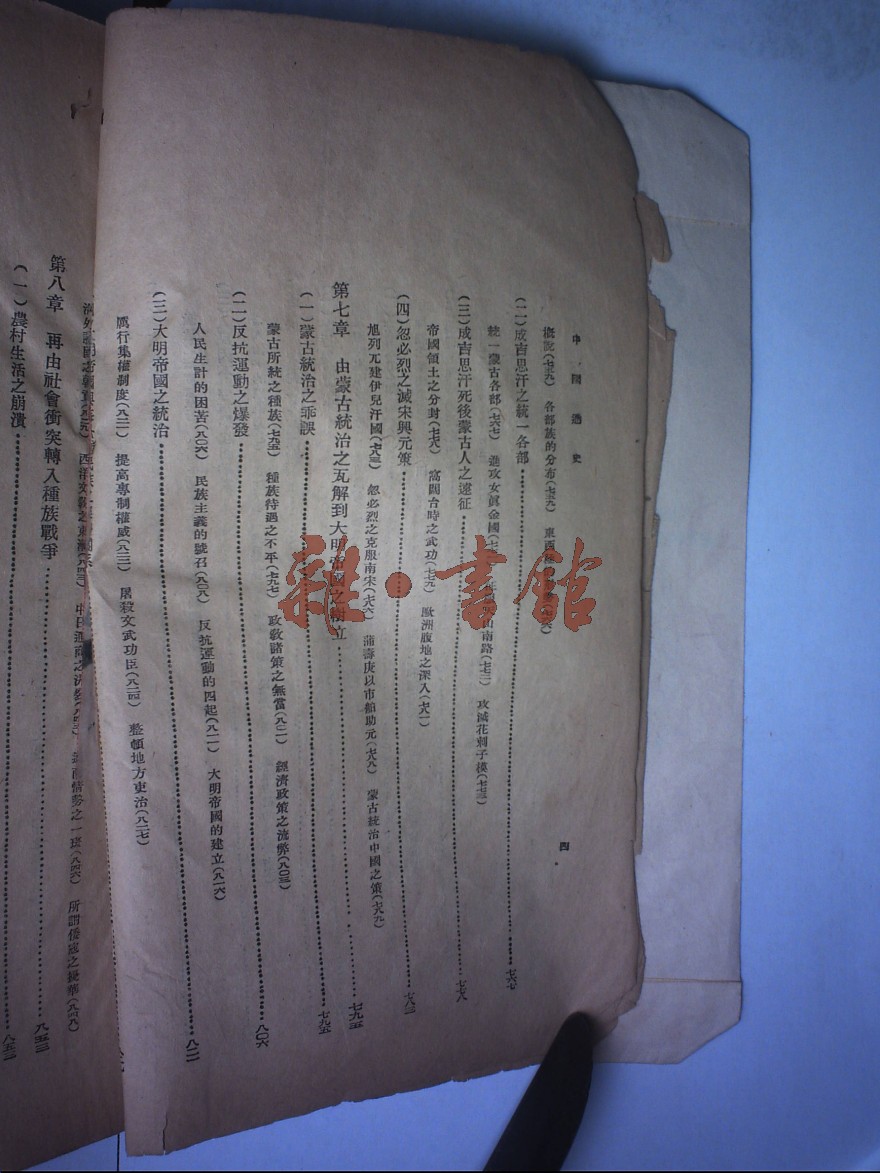 中國通史
四
概說(七五九) 各部族的分布(七五九) 東西
(二)成吉思汗之統一各部 七六七
統一蒙古各部(七六七) 進攻女眞金國 山南路(七七二) 攻滅花剌子模(七七三)
(三)成吉思汗死後蒙古人之遠征 七七八
帝國領土之分封(七七八) 窩闊台時之武功(七七九) 歐洲腹地之深入(七八一)
(四)忽必烈之滅宋興元策 七八三
旭列兀建伊兒汗國(七八三) 忽必烈之克服南宋(七八六) 蒲壽庚以市舶助元(七八八) 蒙古統治中國之策(七八九)
第七章 由蒙古統治之瓦解到大明帝國之樹立 七九五
(一)蒙古統治之乖誤 七九五
蒙古所統之種族(七九五) 種族待遇之不平(七九七) 政敎諸策之無當(八〇一) 經濟政策之流弊(八〇三)
(二)反抗運動之爆發 八〇六
人民生計的困苦(八〇六) 民族主義的號召(八〇八) 反抗運動的四起(八一一) 大明帝國的建立(八一六)
(三)大明帝國之統治 八二一
厲行集權制度(八二一) 提高專制權威(八二三) 屠殺文武功臣(八二四) 整頓地方吏治(八二七)
西洋文敎之東漸 中日通商之 一班(八四六) 所謂倭寇之擾華(八四九)
第八章 再由社會衝突轉入種族戰爭 八五三
(一)農村生活之崩潰 八五三
雜·書館